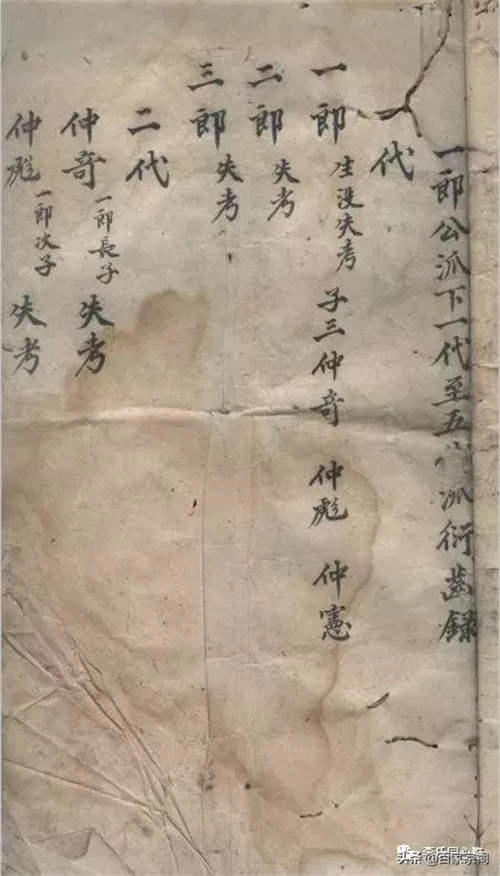 一郎公派下一代至五代派衍齒錄
一代
一郎 生没失考 子三仲奇 仲彪 仲憲
二郎 失考
三郎 失考
二代
仲奇 一郎長子 失考
仲彪 一郎次子 失考
头条 @百家宗祠